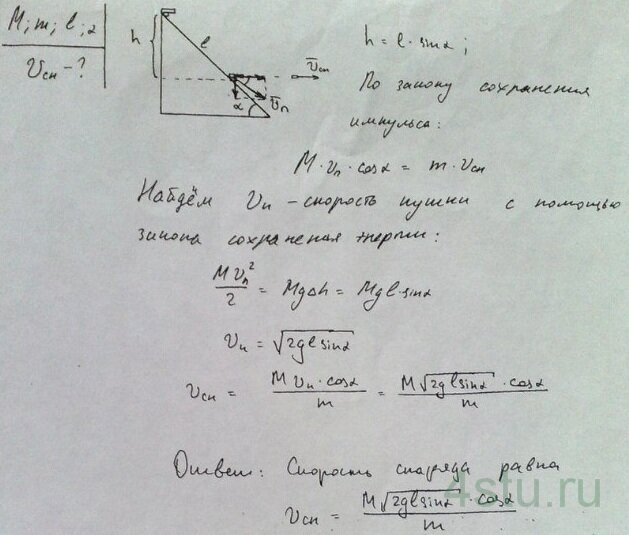 M; m; l; α
Vсн – ?
h
l
V̄сн
α
V̄п
h = l · sinα ;
По закону сохранения
импульса:
M · Vп · cosα = m · Vсн
Найдём Vп – скорость пушки с помощью
закона сохранения энергии:
MVп²/2 = MgΔh = Mgl·sinα
Vп = √2glsinα
Vсн = MVп·cosα/m = M√2glsinα · cosα/m
Ответ: Скорость снаряда равна
Vсн = M√2glsinα · cosα/m
4stu.ru